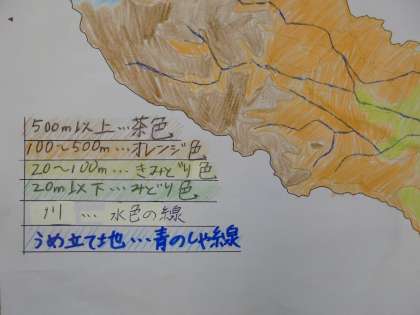 500m以上…茶色
100~500m…オレンジ色
20~100m…きみどり色
20m以下…みどり色
川 … 水色の線
うめ立て地…青のしゃ線